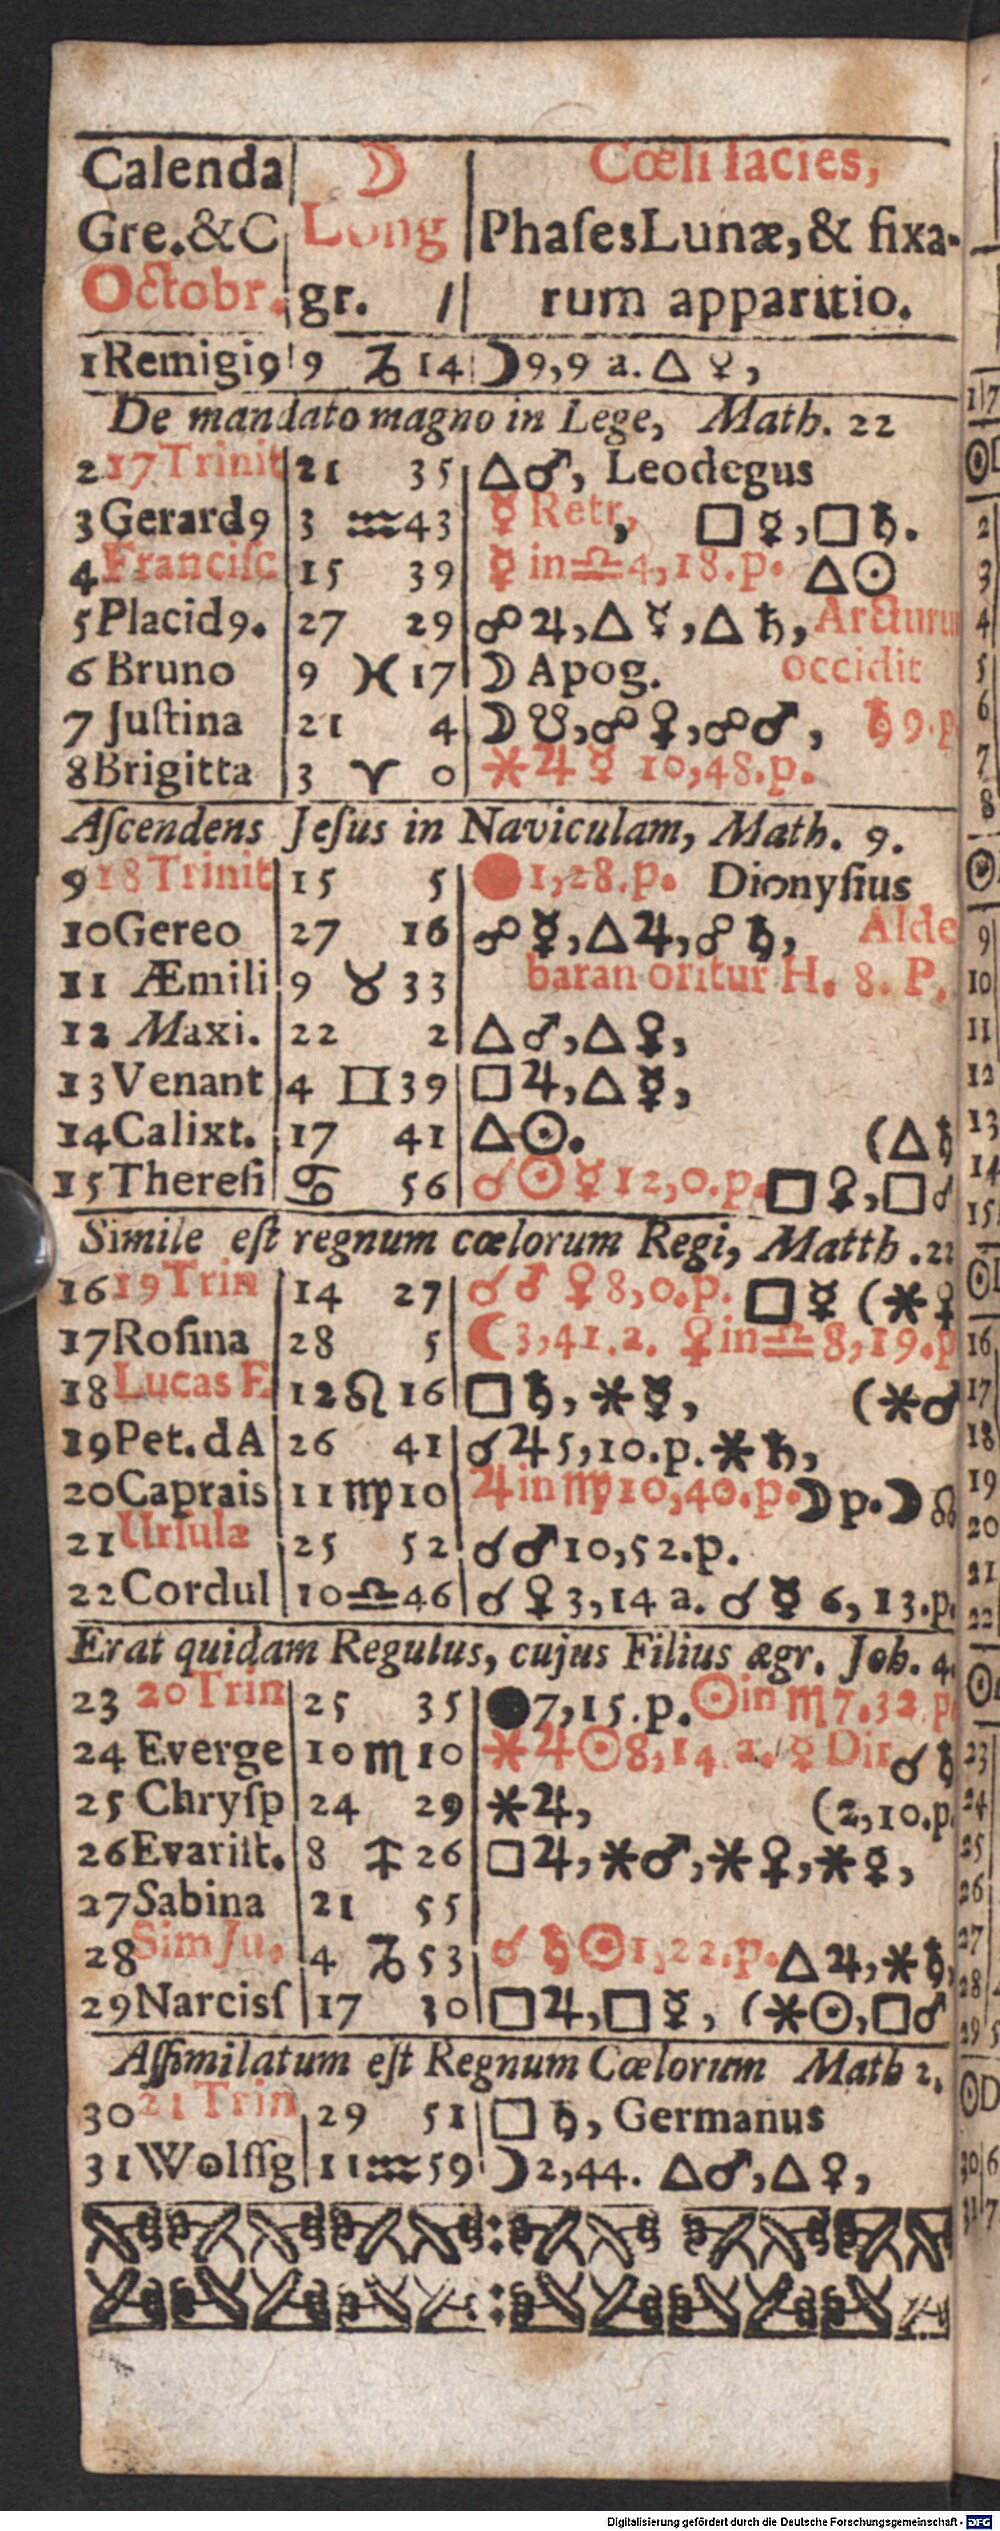 Calenda ☽ Cœli facies,
Gre.&C Long Phaſes Lunæ, & fixa-
Octobr. gr. / rum apparitio.
1 Remigi9 9 ♑ 14 ☽ 9,9 a. △ ♀,
De mandato magno in Lege, Math. 22
2 17 Trinit 21 35 △♂, Leodegus
3 Gerard9 3 ♒ 43 ☿ Retr, □ ☿, □ ♄.
4 Franciſc 15 39 ☿ in ♎ 4,18.p. △☉
5 Placid9. 27 29 ☍ ♃, △ ☿, △ ♄, Arcturu
6 Bruno 9 ♓ 17 ☽ Apog. occidit
7 Juſtina 21 4 ☽ ☋, ☍ ♀, ☍ ♂, ♄ 9.p
8 Brigitta 3 ♈ 0 ⚹ ♃ ☿ 10,48.p.
Aſcendens Jeſus in Naviculam, Math. 9.
9 18 Trinit 15 5 ● 1,28.p. Dionyſius
10 Gereo 27 16 ☍ ☿, △ ♃, ☍ ♄, Alde
11 Æmili 9 ♉ 33 baran oritur H. 8. P.
12 Maxi. 22 2 △ ♂, △ ♀,
13 Venant 4 ♊ 39 □ ♃, △ ☿,
14 Calixt. 17 41 △☉. (△ ♄
15 Thereſi ♋ 56 ☌ ☉ ☿ 12,0.p. □ ♀, □ ♂
Simile eſt regnum cœlorum Regi, Matth. 22
16 19 Trin 14 27 ☌ ♂ ♀ 8,0.p. □ ☿ (⚹ ♀
17 Roſina 28 5 ☾ 3,41.2. ♀ in ♎ 8,19.p
18 Lucas E 12 ♌ 16 □ ♄, ⚹ ☿, (⚹ ♂
19 Pet. d A 26 41 ☌ ♃ 5,10.p. ⚹ ♄,
20 Caprais 11 ♍ 10 ♃ in ♍ 10,40.p. ☽ p. ☽ ☊
21 Urſula 25 52 ☌ ♂ 10,52.p.
22 Cordul 10 ♎ 46 ☌ ♀ 3,14 a. ☌ ☿ 6,13.p.
Erat quidam Regulus, cujus Filius ægr. Joh. 4.
23 20 Trin 25 35 ● 7,15.p. ☉ in ♏ 7.32.p
24 Everge 10 ♏ 10 ⚹ ♃ ☉ 8,14.a. ☿ Dir ☌ ♄
25 Chryſp 24 29 ⚹ ♃, (2,10.p.
26 Evariſt. 8 ♐ 26 □ ♃, ⚹ ♂, ⚹ ♀, ⚹ ☿,
27 Sabina 21 55
28 Sim Ju. 4 ♑ 53 ☌ ♄ ☉ 1,22.p. △ ♃, ⚹ ♄,
29 Narcisſ 17 30 □ ♃, □ ☿, (⚹ ☉, □ ♂
Aſſimilatum eſt Regnum Cœlorum Math 2.
30 21 Trin 29 51 □ ♄, Germanus
31 Wolfſg 11 ♒ 59 ☽ 2,44. △ ♂, △ ♀,
Digitalisierung gefördert durch die Deutsche Forschungsgemeinschaft - DFG